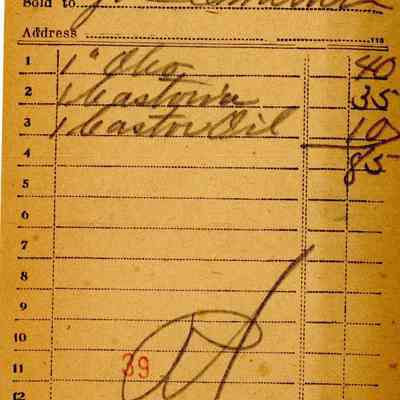 Sold to
Address
1 1 40
2 1 Castoria 35
3 1 Castor Oil 10
4 85
5
6
7
8
9
10
11 39
12